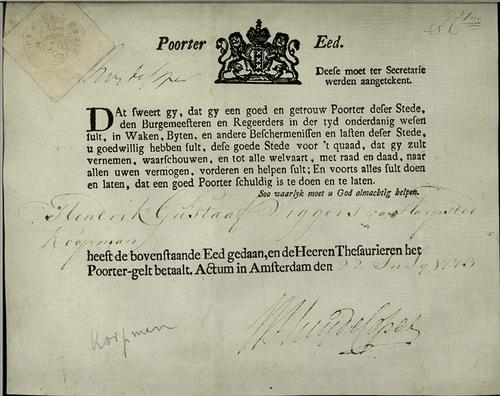 Poorter Eed.
Deese moet ter Secretarie
werden aangetekent.
DAt sweert gy, dat gy een goed en getrouw Poorter deser Stede,
den Burgemeesteren en Regeerders in der tyd onderdanig wesen
sult, in Waken, Byten, en andere Beschermenissen en lasten deser Stede,
u goedwillig hebben sult, dese goede Stede voor 't quaad, dat gy zult
vernemen, waarschouwen, en tot alle welvaart, met raad en daad, naar
allen uwen vermogen, vorderen en helpen sult; En voorts alles sult doen
en laten, dat een goed Poorter schuldig is te doen en te laten.
Soo waarlyk moet u God almachtig helpen.
Hendrik Gustaaf
Koopman
heeft de bovenstaande Eed gedaan, en de Heeren Thesaurieren het
Poorter-gelt betaalt. Actum in Amsterdam den 22 July
Koopman